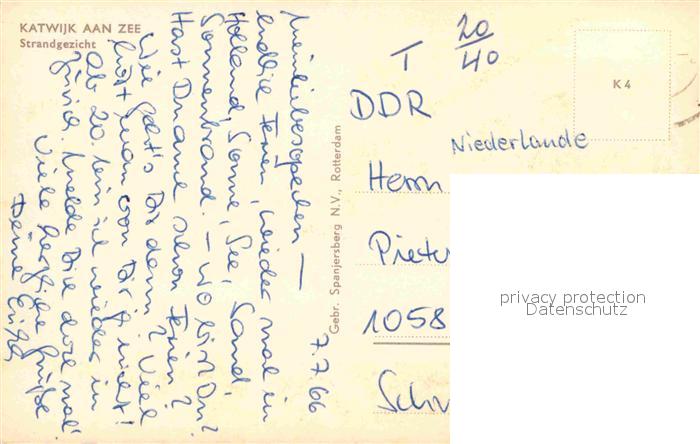 KATWIJK AAN ZEE
Strandgezicht
7.7.66
endlich Ferien, wieder mal in
Holland, Sonne, See, Sand,
Sonnenbrand. – Wo bist Du?
Hast Du auch schon Ferien?
Wie geht's Dir denn? Viel
hört man von Dir ja nicht!
Ab 20. bin ich wieder in
Melde Dich doch mal!
Viele herzliche Grüße
Deine
Gebr. Spanjersberg N.V., Rotterdam
T 20/40
K 4
DDR
Niederlande
Herrn
Pieter
1058
Schw
privacy protection
Datenschutz